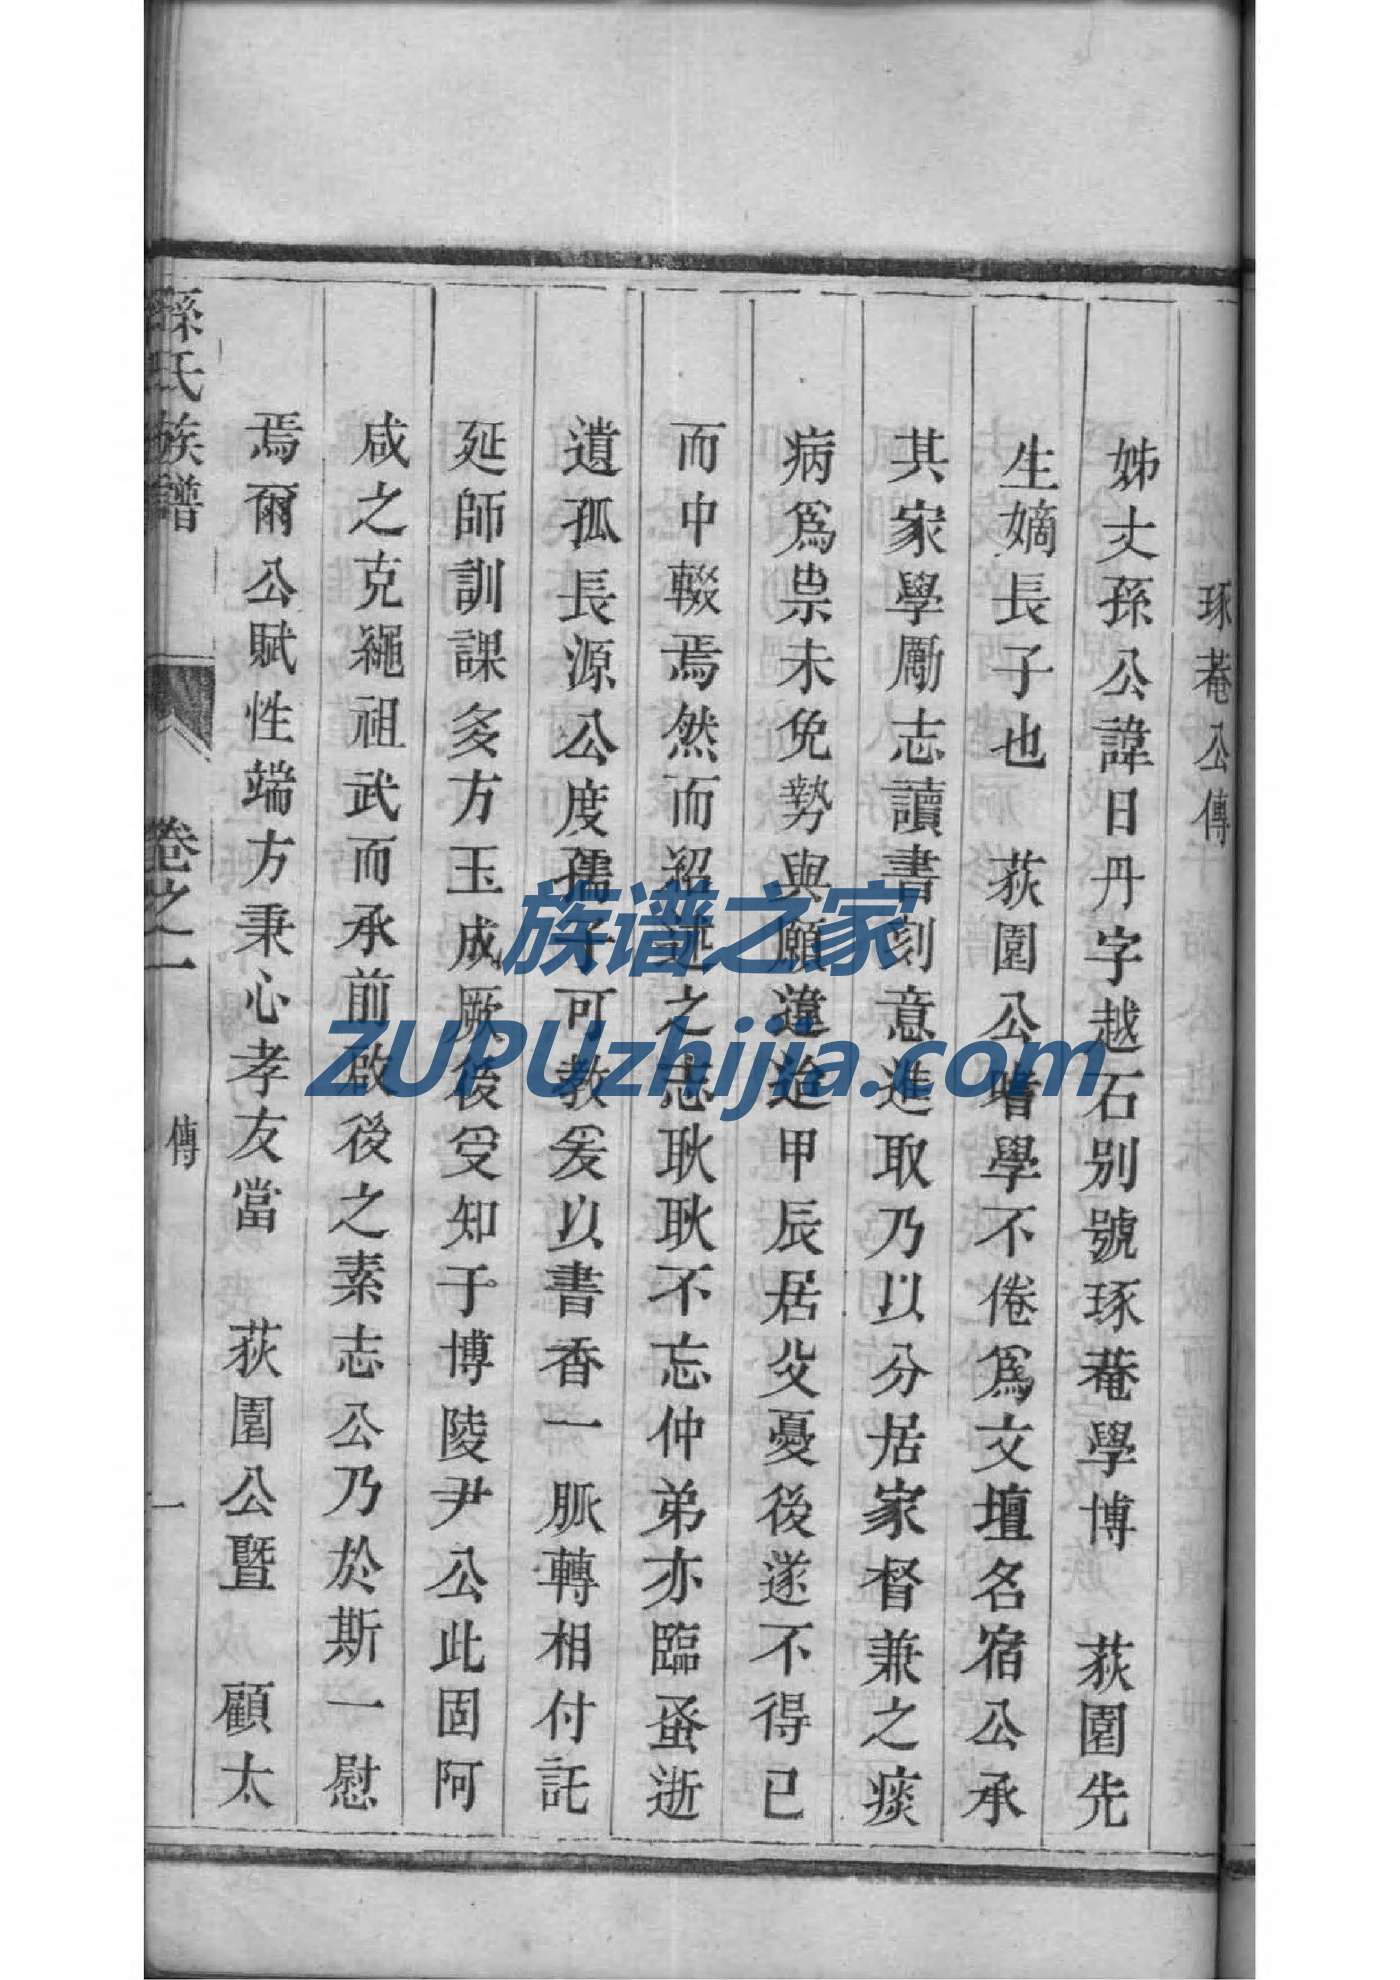 琢菴公傳
姊丈孫公諱日丹字越石別號琢菴學博　荻園先
生嫡長子也　荻園公嗜學不倦爲文壇名宿公承
其家學勵志讀書刻意進取乃以分居家督兼之痰
病爲祟未免勢與願違迨甲辰居父憂後遂不得已
而中輟焉然而紹述之志耿耿不忘仲弟亦臨蚤逝
遺孤長源公度孺子可教爰以書香一脈轉相付託
延師訓課多方玉成厥後受知于博陵尹公此固阿
咸之克繩祖武而承前啟後之素志公乃於斯一慰
焉爾公賦性端方秉心孝友當　荻園公暨　顧太
孫氏族譜　卷之一　傳　一
族谱之家
ZUPUzhijia.com